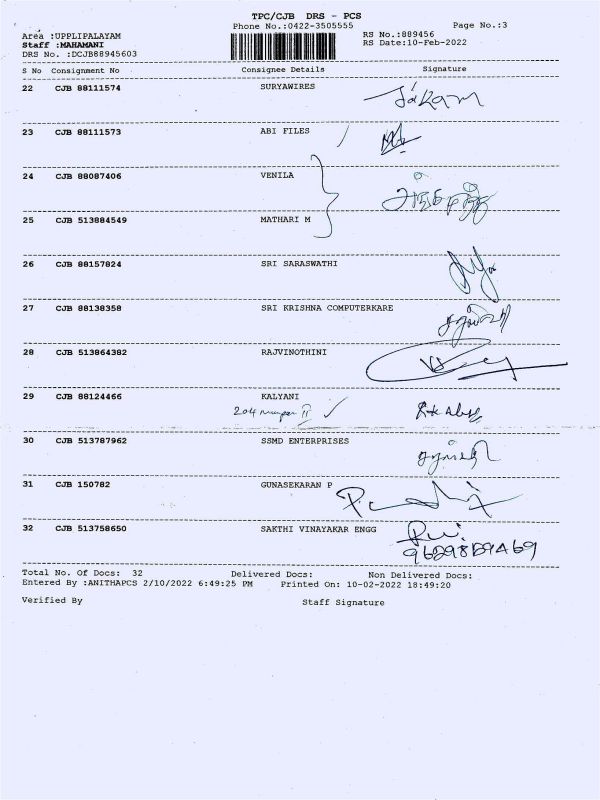 TPC/CJB DRS - PCS
Phone No.:0422-3505555
Page No.:3
Area :UPPLIPALAYAM
RS No.:889456
Staff :MAHAMANI
RS Date:10-Feb-2022
DRS No. :DCJB88945603
S No Consignment No Consignee Details Signature
22 CJB 88111574 SURYAWIRES
23 CJB 88111573 ABI FILES
24 CJB 88087406 VENILA
25 CJB 513884549 MATHARI M
26 CJB 88157824 SRI SARASWATHI
27 CJB 88138358 SRI KRISHNA COMPUTERKARE
28 CJB 513864382 RAJVINOTHINI
29 CJB 88124466 KALYANI
204
30 CJB 513787962 SSMD ENTERPRISES
31 CJB 150782 GUNASEKARAN P
32 CJB 513758650 SAKTHI VINAYAKAR ENGG
Total No. Of Docs: 32 Delivered Docs: Non Delivered Docs:
Entered By :ANITHAPCS 2/10/2022 6:49:25 PM Printed On: 10-02-2022 18:49:20
Verified By Staff Signature